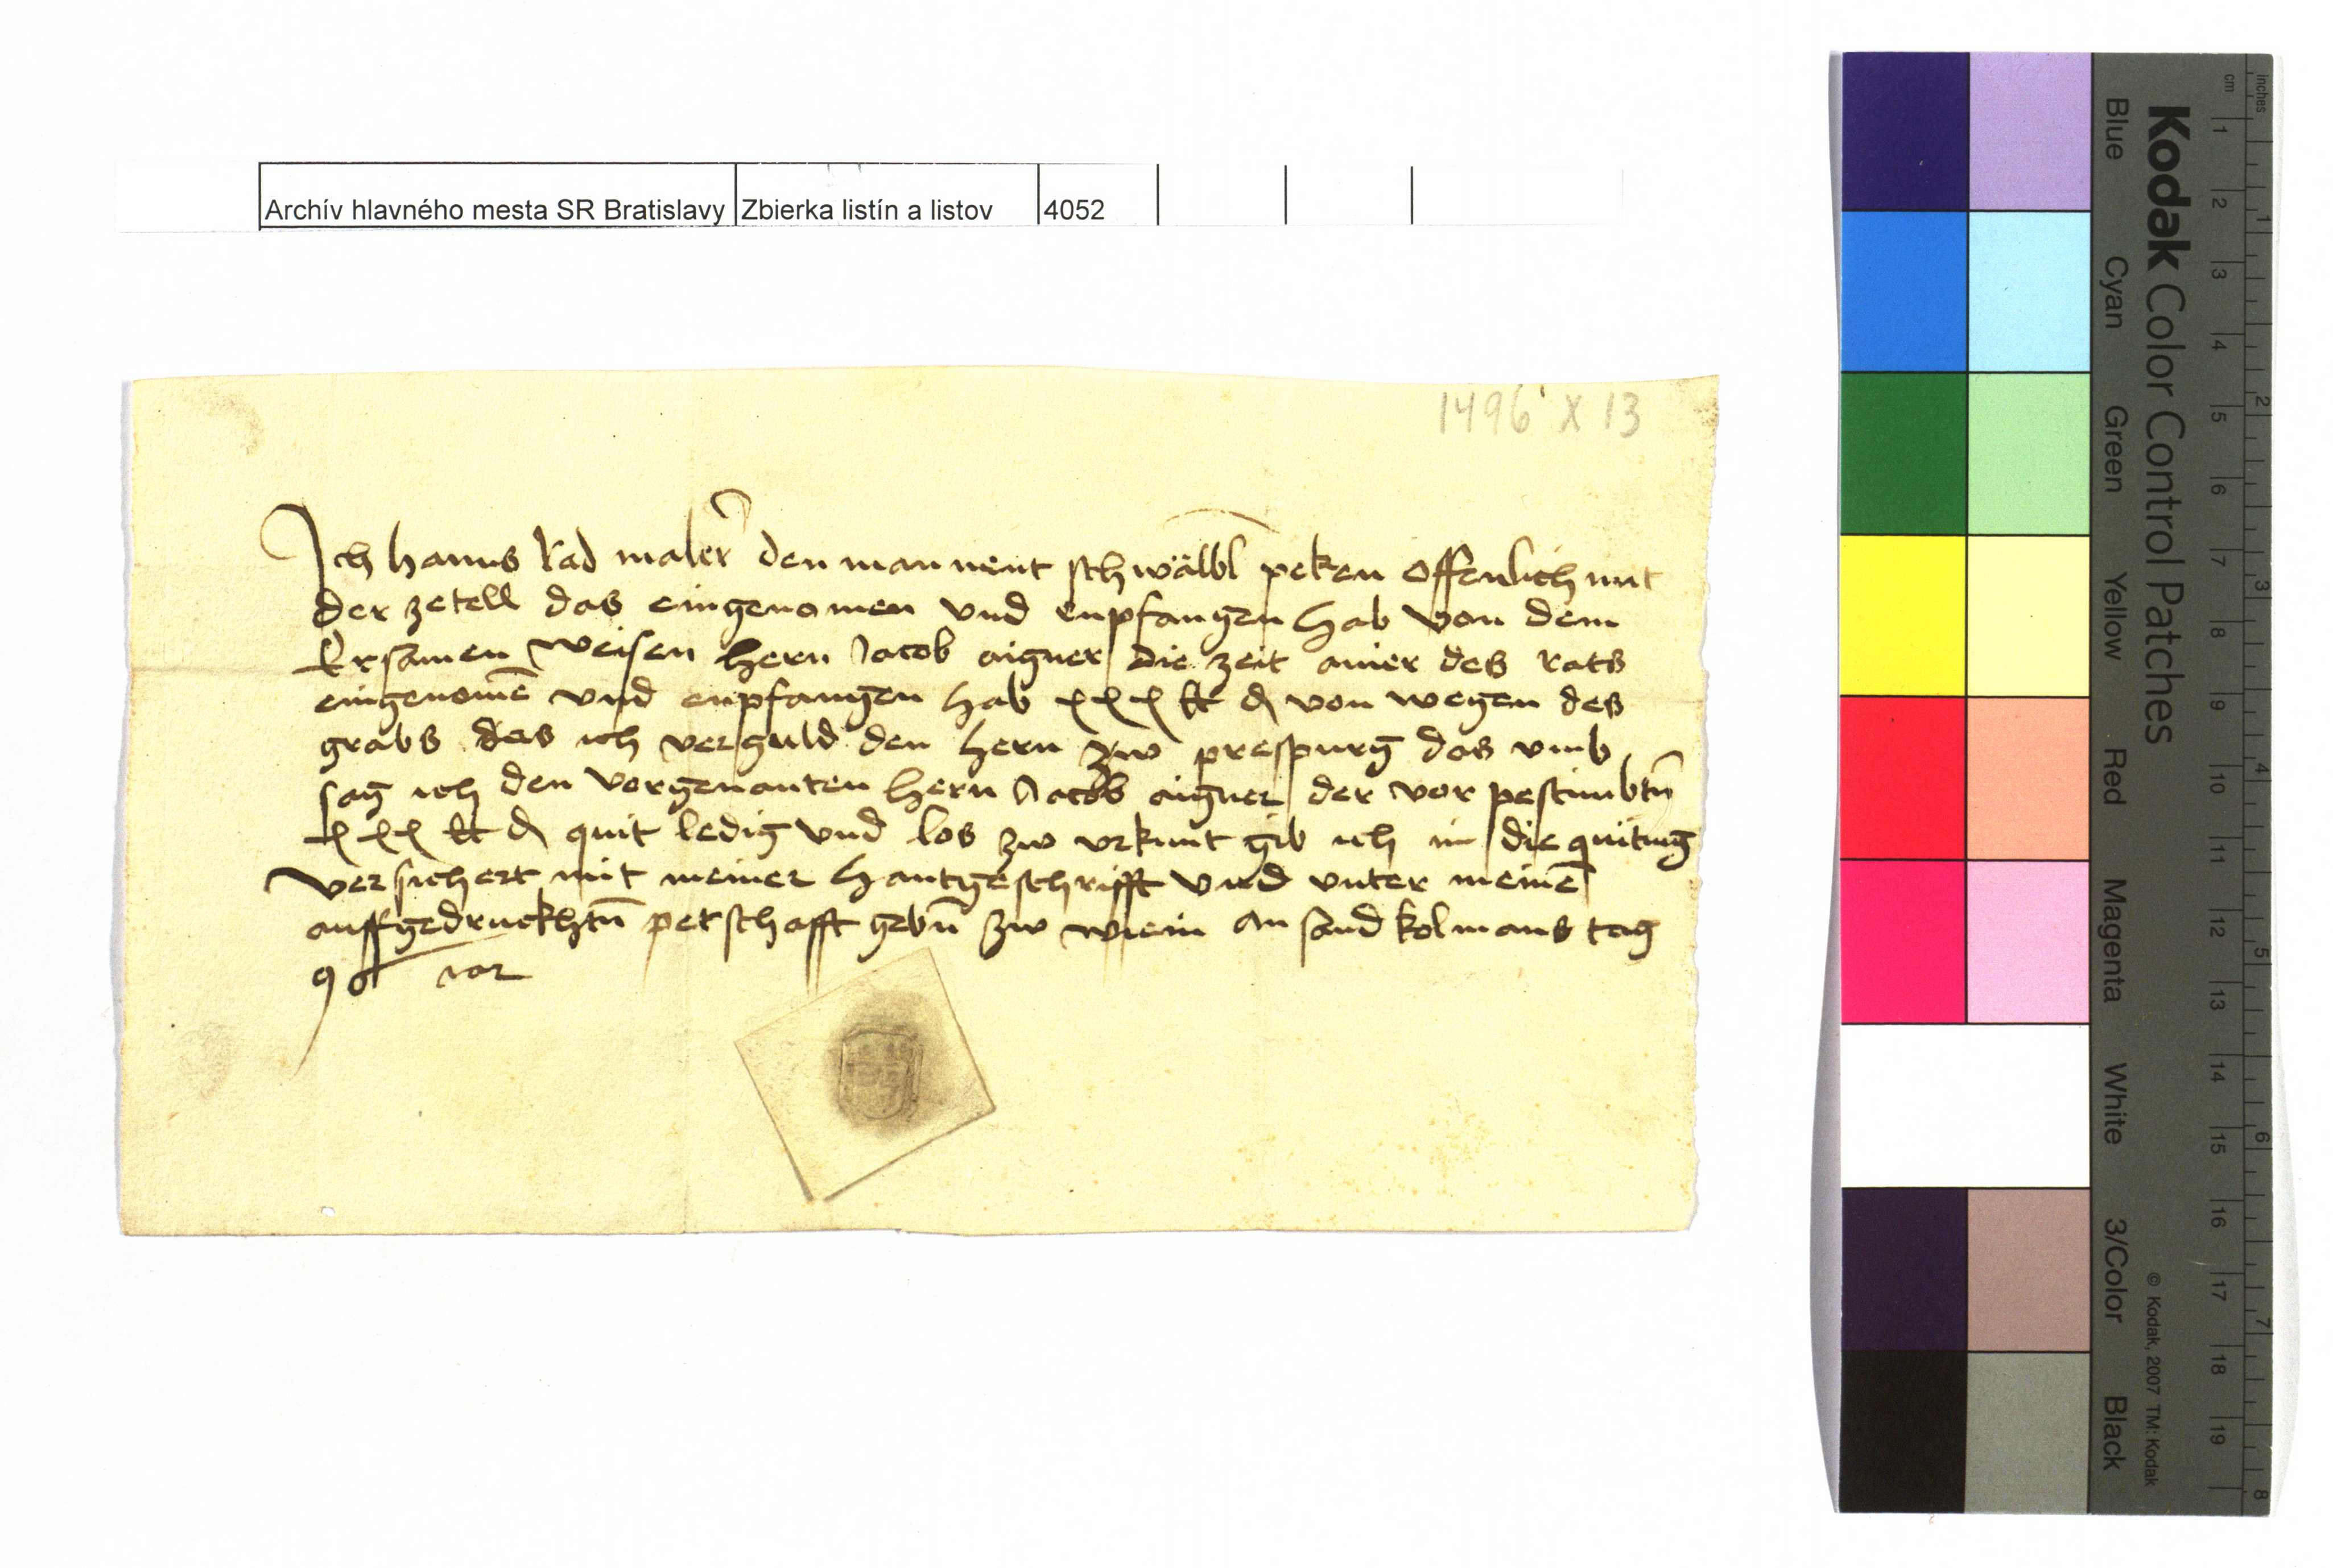 Archív hlavného mesta SR Bratislavy Zbierka listín a listov 4052
1496 X 13
Ich hanns Rad maler den man nent schwälbl peken offenlich mit
der zetell das eingenomen vnd enpfangen hab von dem
Ersamen weisen hern Jacob aigner die zeit ainer des rats
eingenomē vnd enpfangen hab xxx ₰ von wegen des
grabs das ich verguld den hern zw prespurg das vmb
sag ich den vorgenanten hern Jacob aigner der vor pestimbtn̄
xxx ₰ quit ledig vnd los zw vrkunt gib ich im die quitung
versichert mit meiner hantgeschrifft vnd vnter meinē
auffgedruckhtn̄ petschafft gebn̄ zw wienn an sand kolmans tag
96 iar
Kodak Color Control Patches
Blue Cyan Green Yellow Red Magenta White 3/Color Black
© Kodak, 2007 TM: Kodak
inches 1 2 3 4 5 6 7 8
cm 1 2 3 4 5 6 7 8 9 10 11 12 13 14 15 16 17 18 19